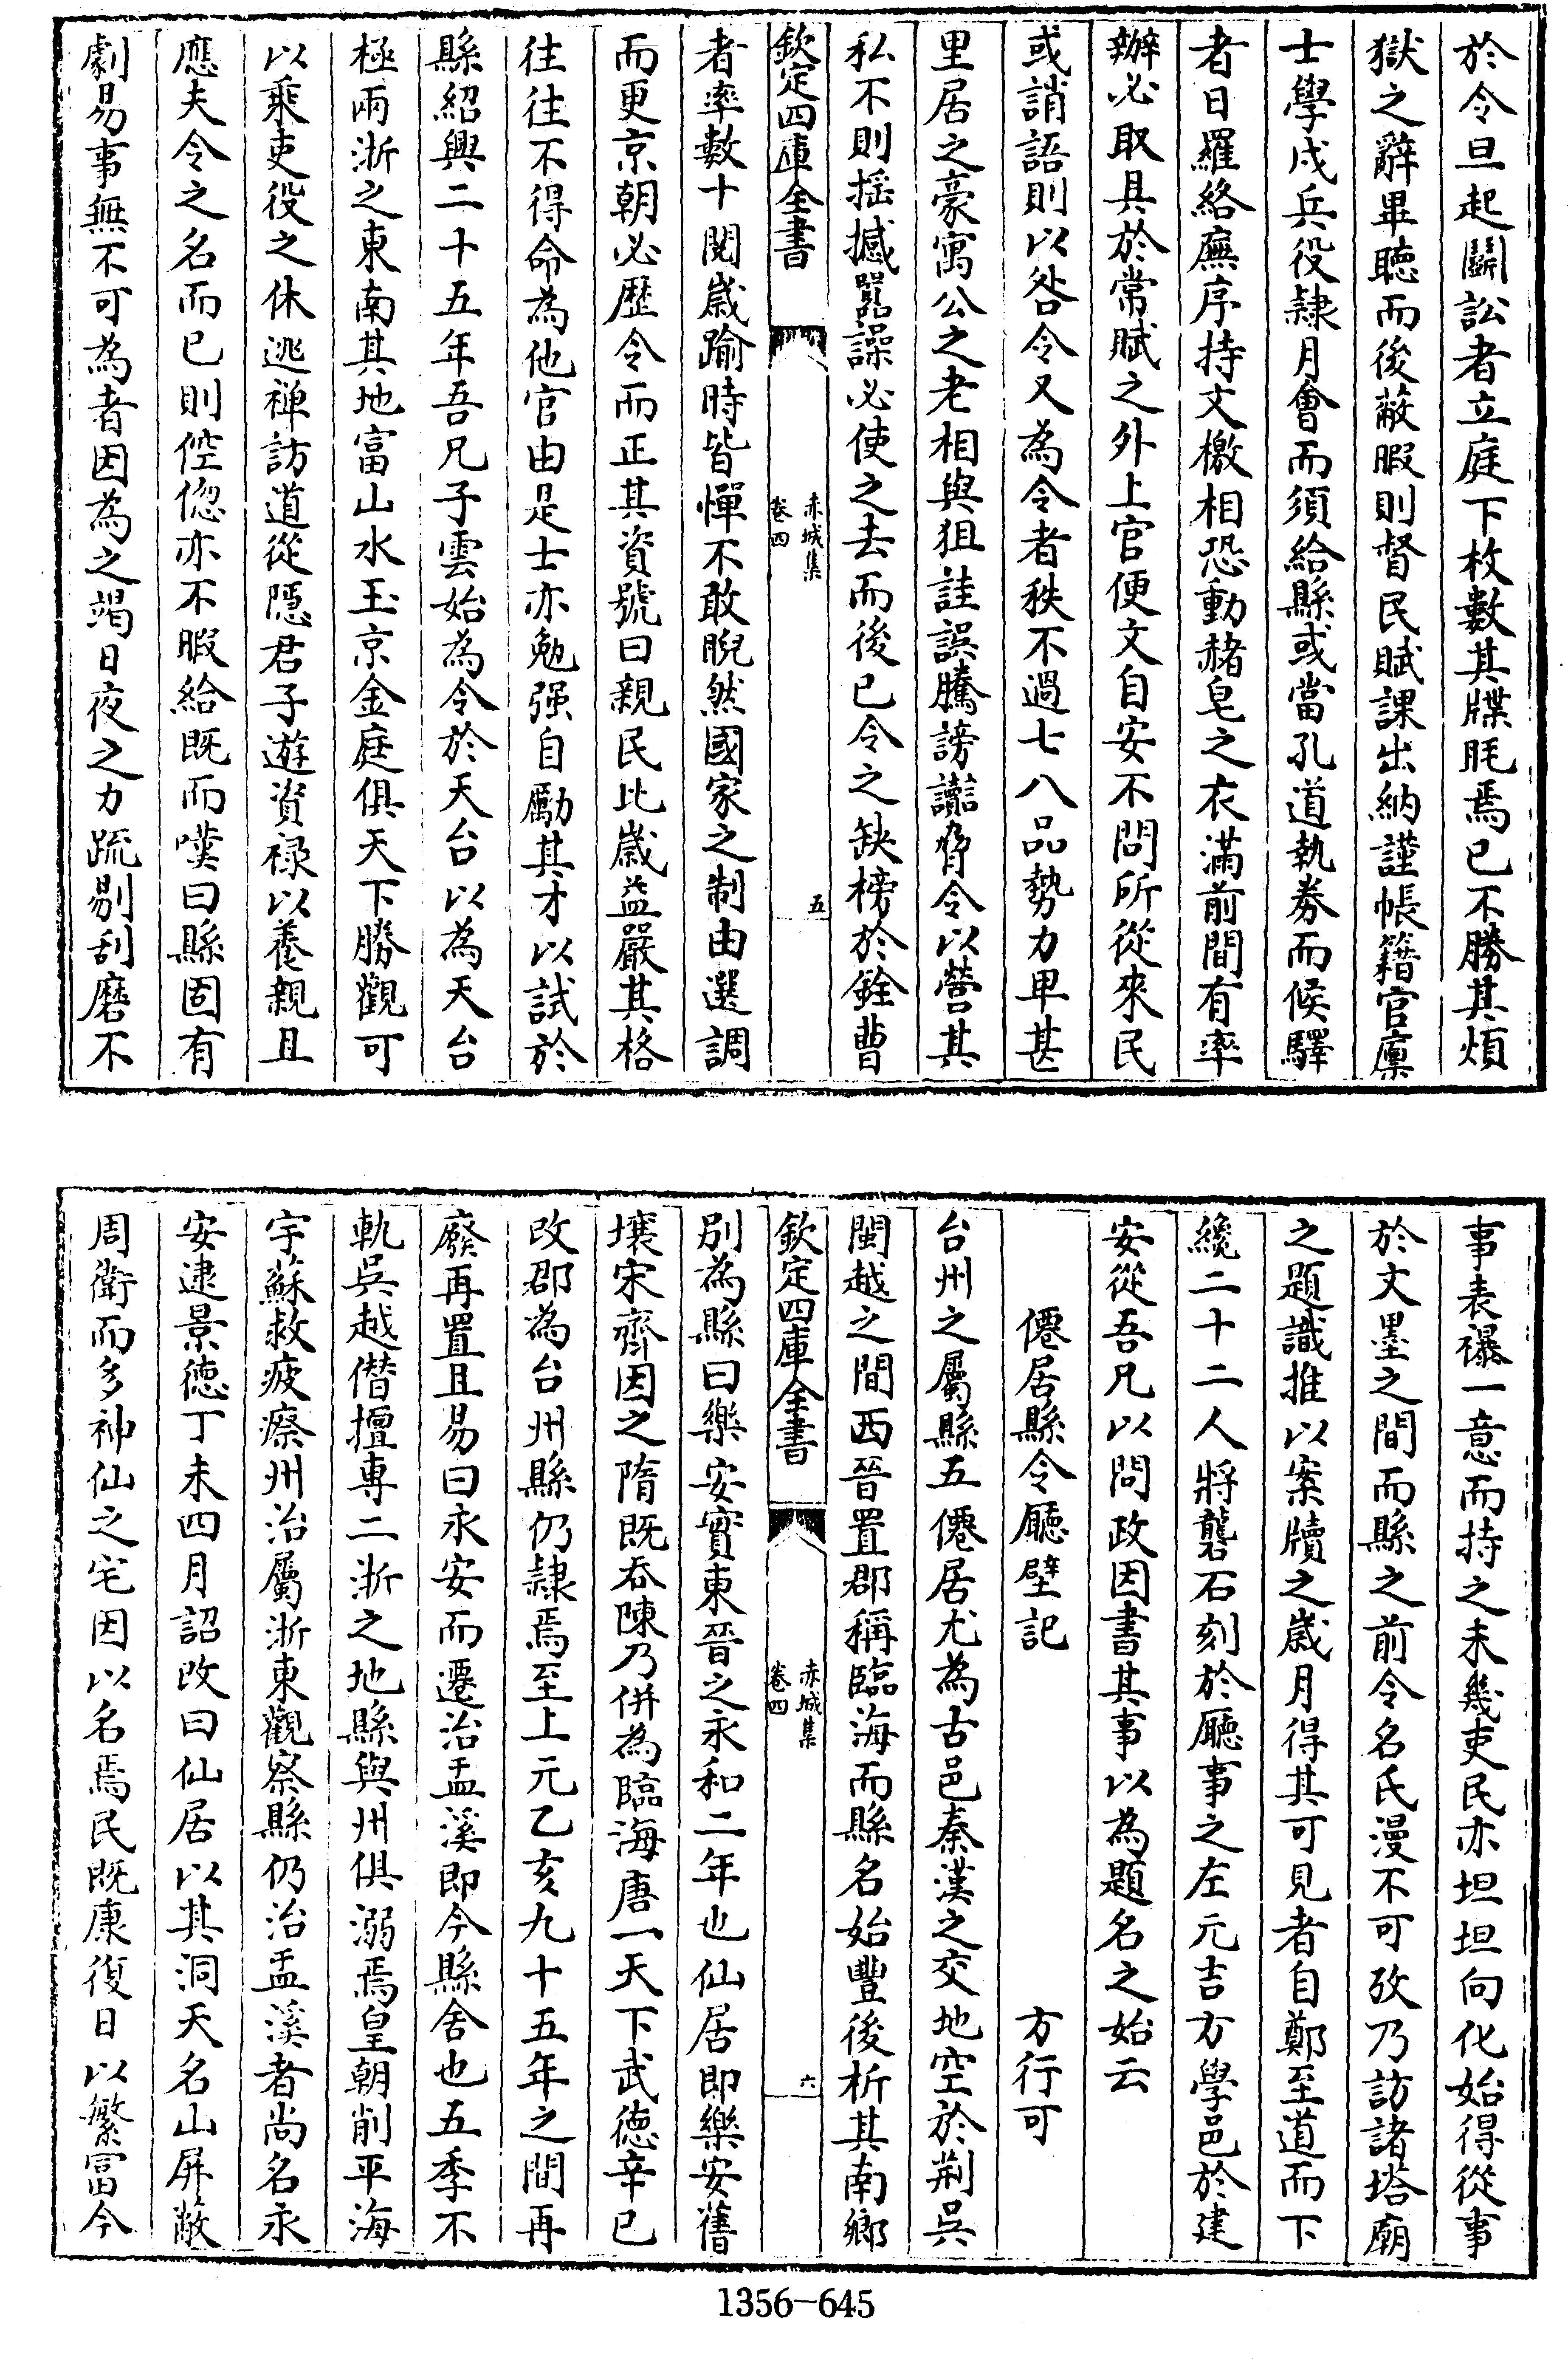 於令旦起鬬訟者立庭下枚數其牒眊焉已不勝其煩
獄之辭畢聽而後蔽暇則督民賦課出納謹帳籍官廩
士學戍兵役隷月會而須給縣或當孔道執劵而候驛
者日羅絡廡序持文檄相恐動赭皂之衣滿前間有率
辦必取具於常賦之外上官便文自安不問所從來民
或誚語則以咎令又為令者秩不過七八品勢力卑甚
里居之豪寓公之老相與狙詿誤騰謗讟脅令以營其
私不則揺撼嚣譟必使之去而後已令之缺榜於銓曹
欽定四庫全書
赤城集
卷四
五
者率數十閱歲踰時皆憚不敢睨然國家之制由選調
而更京朝必歴令而正其資號曰親民比歲益嚴其格
往往不得命為他官由是士亦勉强自勵其才以試於
縣紹興二十五年吾兄子雲始為令於天台以為天台
極兩浙之東南其地富山水玉京金庭俱天下勝觀可
以乘吏役之休逃禪訪道從隱君子遊資禄以養親且
應夫令之名而已則倥偬亦不暇給既而嘆曰縣固有
劇易事無不可為者因為之竭日夜之力疏剔刮磨不
事表襮一意而持之未幾吏民亦坦坦向化始得從事
於文墨之間而縣之前令名氏漫不可攷乃訪諸塔廟
之題識推以案牘之歲月得其可見者自鄭至道而下
纔二十二人將礱石刻於廳事之左元吉方學邑於建
安從吾兄以問政因書其事以為題名之始云
僊居縣令廳壁記
方行可
台州之屬縣五僊居尤為古邑秦漢之交地空於荆吳
閩越之間西晉置郡稱臨海而縣名始豐後析其南鄉
欽定四庫全書
赤城集
卷四
六
别為縣曰樂安實東晉之永和二年也仙居即樂安舊
壤宋齊因之隋既吞陳乃併為臨海唐一天下武德辛巳
改郡為台州縣仍隷焉至上元乙亥九十五年之間再
廢再置且易曰永安而遷治盂溪即今縣舍也五季不
軌吳越僣擅專二浙之地縣與州俱溺焉皇朝削平海
宇蘇救疲瘵州治屬浙東觀察縣仍治盂溪者尚名永
安逮景德丁未四月詔改曰仙居以其洞天名山屏蔽
周衛而多神仙之宅因以名焉民既康復日以繁富今
1356-645